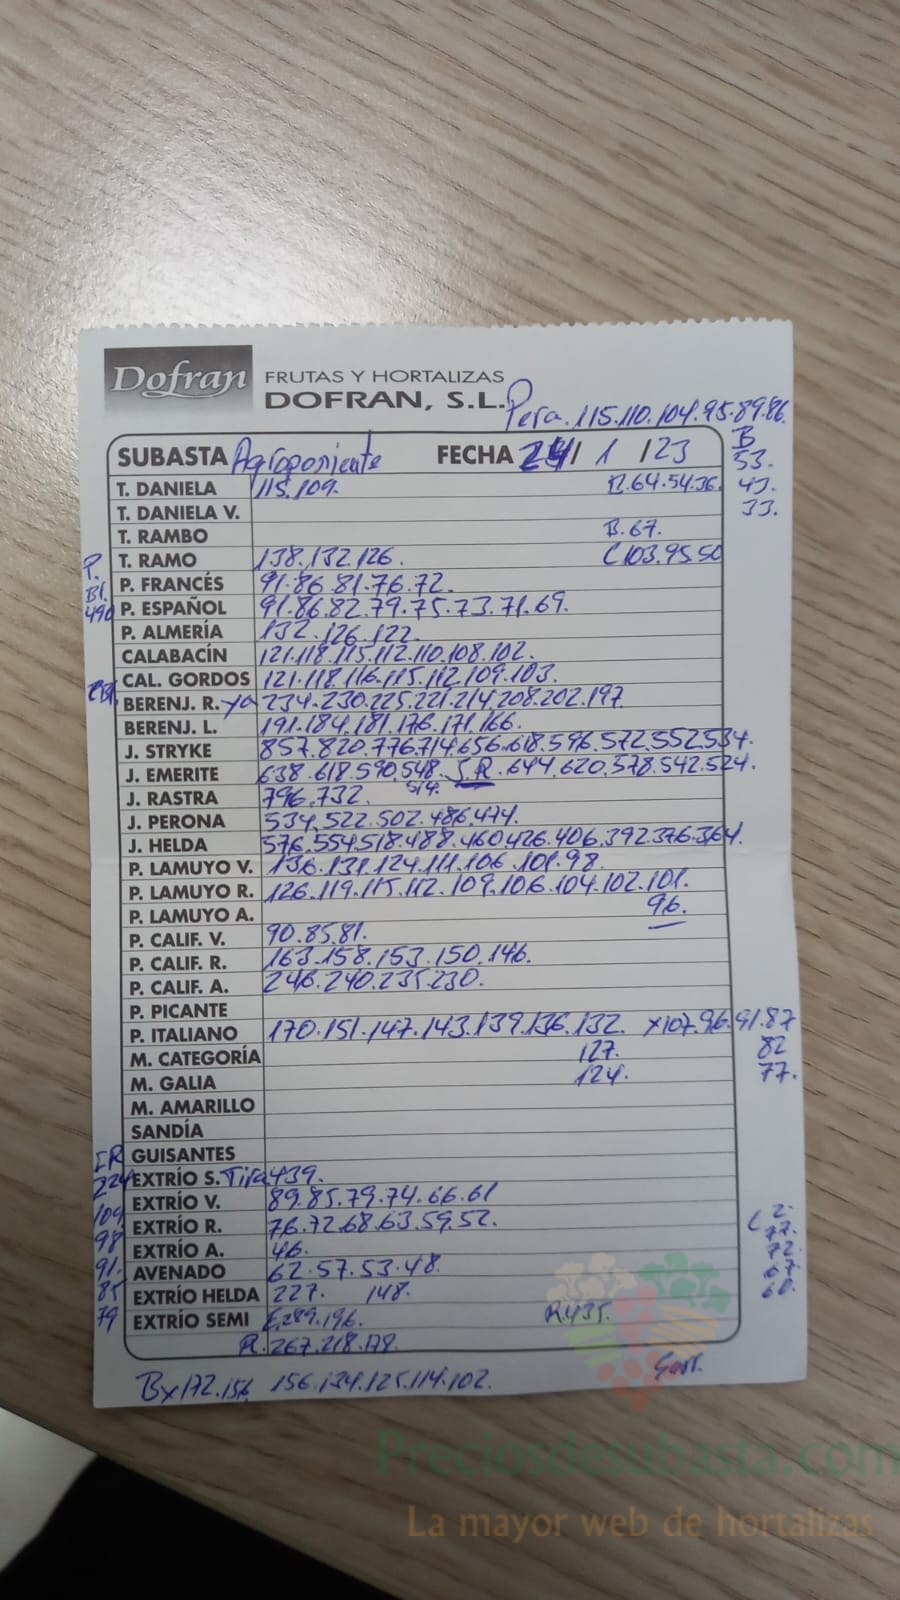 Dofran FRUTAS Y HORTALIZAS
DOFRAN, S.L. Pera.115.110.104.95.89.86.
SUBASTA Agroponiente FECHA 24/ 1 /23 B
53.
T. DANIELA 115.109. B.64.54.36. 43.
T. DANIELA V. 33.
T. RAMBO B.67.
T. RAMO 138.132.126. C103.95.50
P.
P. FRANCÉS 91.86.81.76.72.
Bl.
P. ESPAÑOL 91.86.82.79.75.73.71.69.
490
P. ALMERÍA 132.126.122.
CALABACÍN 121.118.115.112.110.108.102.
CAL. GORDOS 121.118.116.115.112.109.103.
BERENJ. R. 234.230.225.221.214.208.202.197
BERENJ. L. 191.184.181.176.171.166.
J. STRYKE 857.820.776.714.656.618.596.572.552.534.
J. EMERITE 638.618.590.548. S.R.644.620.578.542.524.
514.
J. RASTRA 796.732.
J. PERONA 534.522.502.486.474.
J. HELDA 576.554.518.488.460.426.406.392.376.364.
P. LAMUYO V. 136.131.124.111.106.101.98.
P. LAMUYO R. 126.119.115.112.109.106.104.102.101.
P. LAMUYO A. 96.
P. CALIF. V. 90.85.81.
P. CALIF. R. 163.158.153.150.146.
P. CALIF. A. 246.240.235.230.
P. PICANTE
P. ITALIANO 170.151.147.143.139.136.132. x107.96.91.87
M. CATEGORÍA 127. 82
M. GALIA 124. 77.
M. AMARILLO
SANDÍA
GUISANTES
224 EXTRÍO S. Tira439.
EXTRÍO V. 89.85.79.74.66.61
109 EXTRÍO R. 76.72.68.63.59.52.
98 EXTRÍO A. 46.
91. AVENADO 62.57.53.48.
85 EXTRÍO HELDA 227. 148.
79 EXTRÍO SEMI 289.196. R.435.
R.267.218.178.
Bx172.156. 156.134.125.114.102.
C 77.
72.
67.
60.
Preciosdesubasta.com
La mayor web de hortalizas